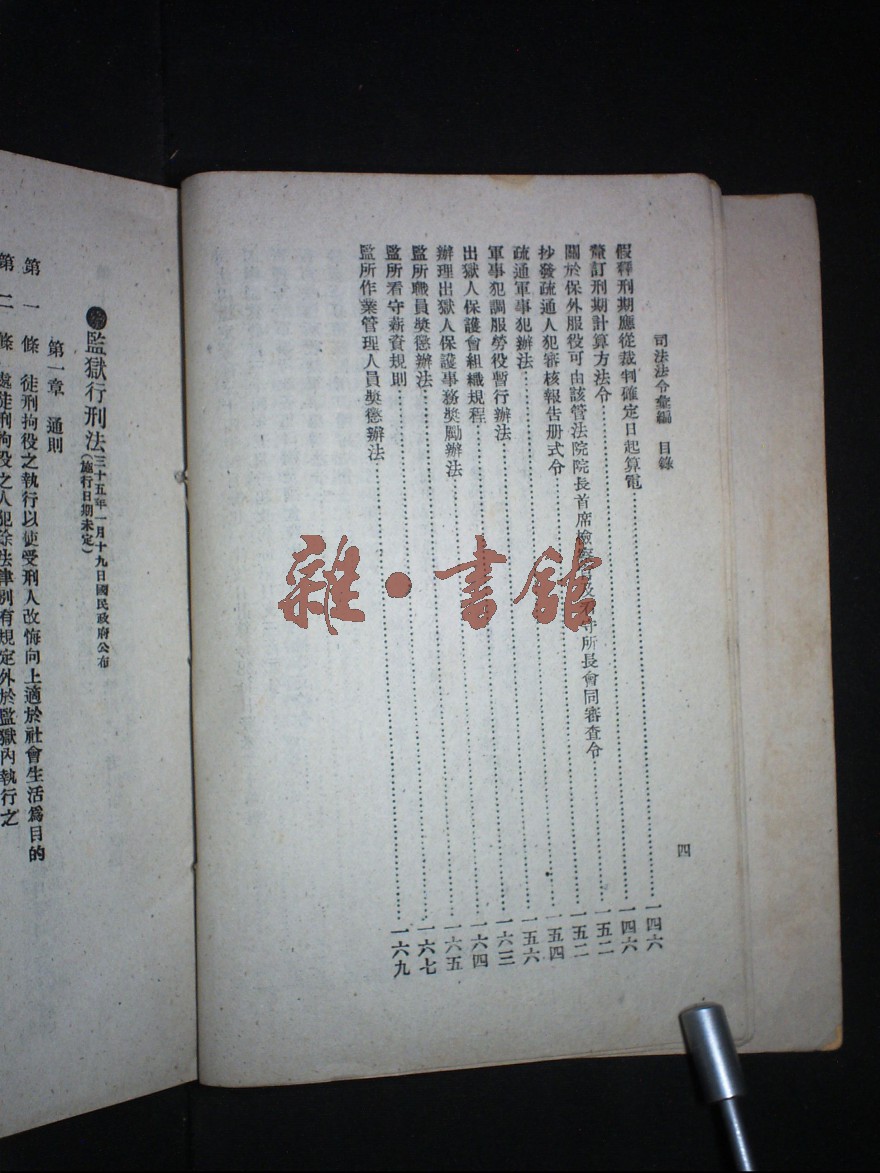 司法法令彙編　目錄
四
假釋刑期應從裁判確定日起算電……一四六
釐訂刑期計算方法令……一四六
關於保外服役可由該管法院院長首席檢察官及看守所長會同審查令……一五二
抄發疏通人犯審核報告册式令……一五二
疏通軍事犯辦法……一五四
軍事犯調服勞役暫行辦法……一五六
出獄人保護會組織規程……一六三
辦理出獄人保護事務獎勵辦法……一六四
監所職員獎懲辦法……一六五
監所看守薪資規則……一六七
監所作業管理人員獎懲辦法……一六九
雜·書館
監獄行刑法
三十五年一月十九日國民政府公布
(施行日期未定)
第一章　通則
第一條　徒刑拘役之執行以使受刑人改悔向上適於社會生活爲目的
第二條　處徒刑拘役之人犯除法律別有規定外於監獄內執行之